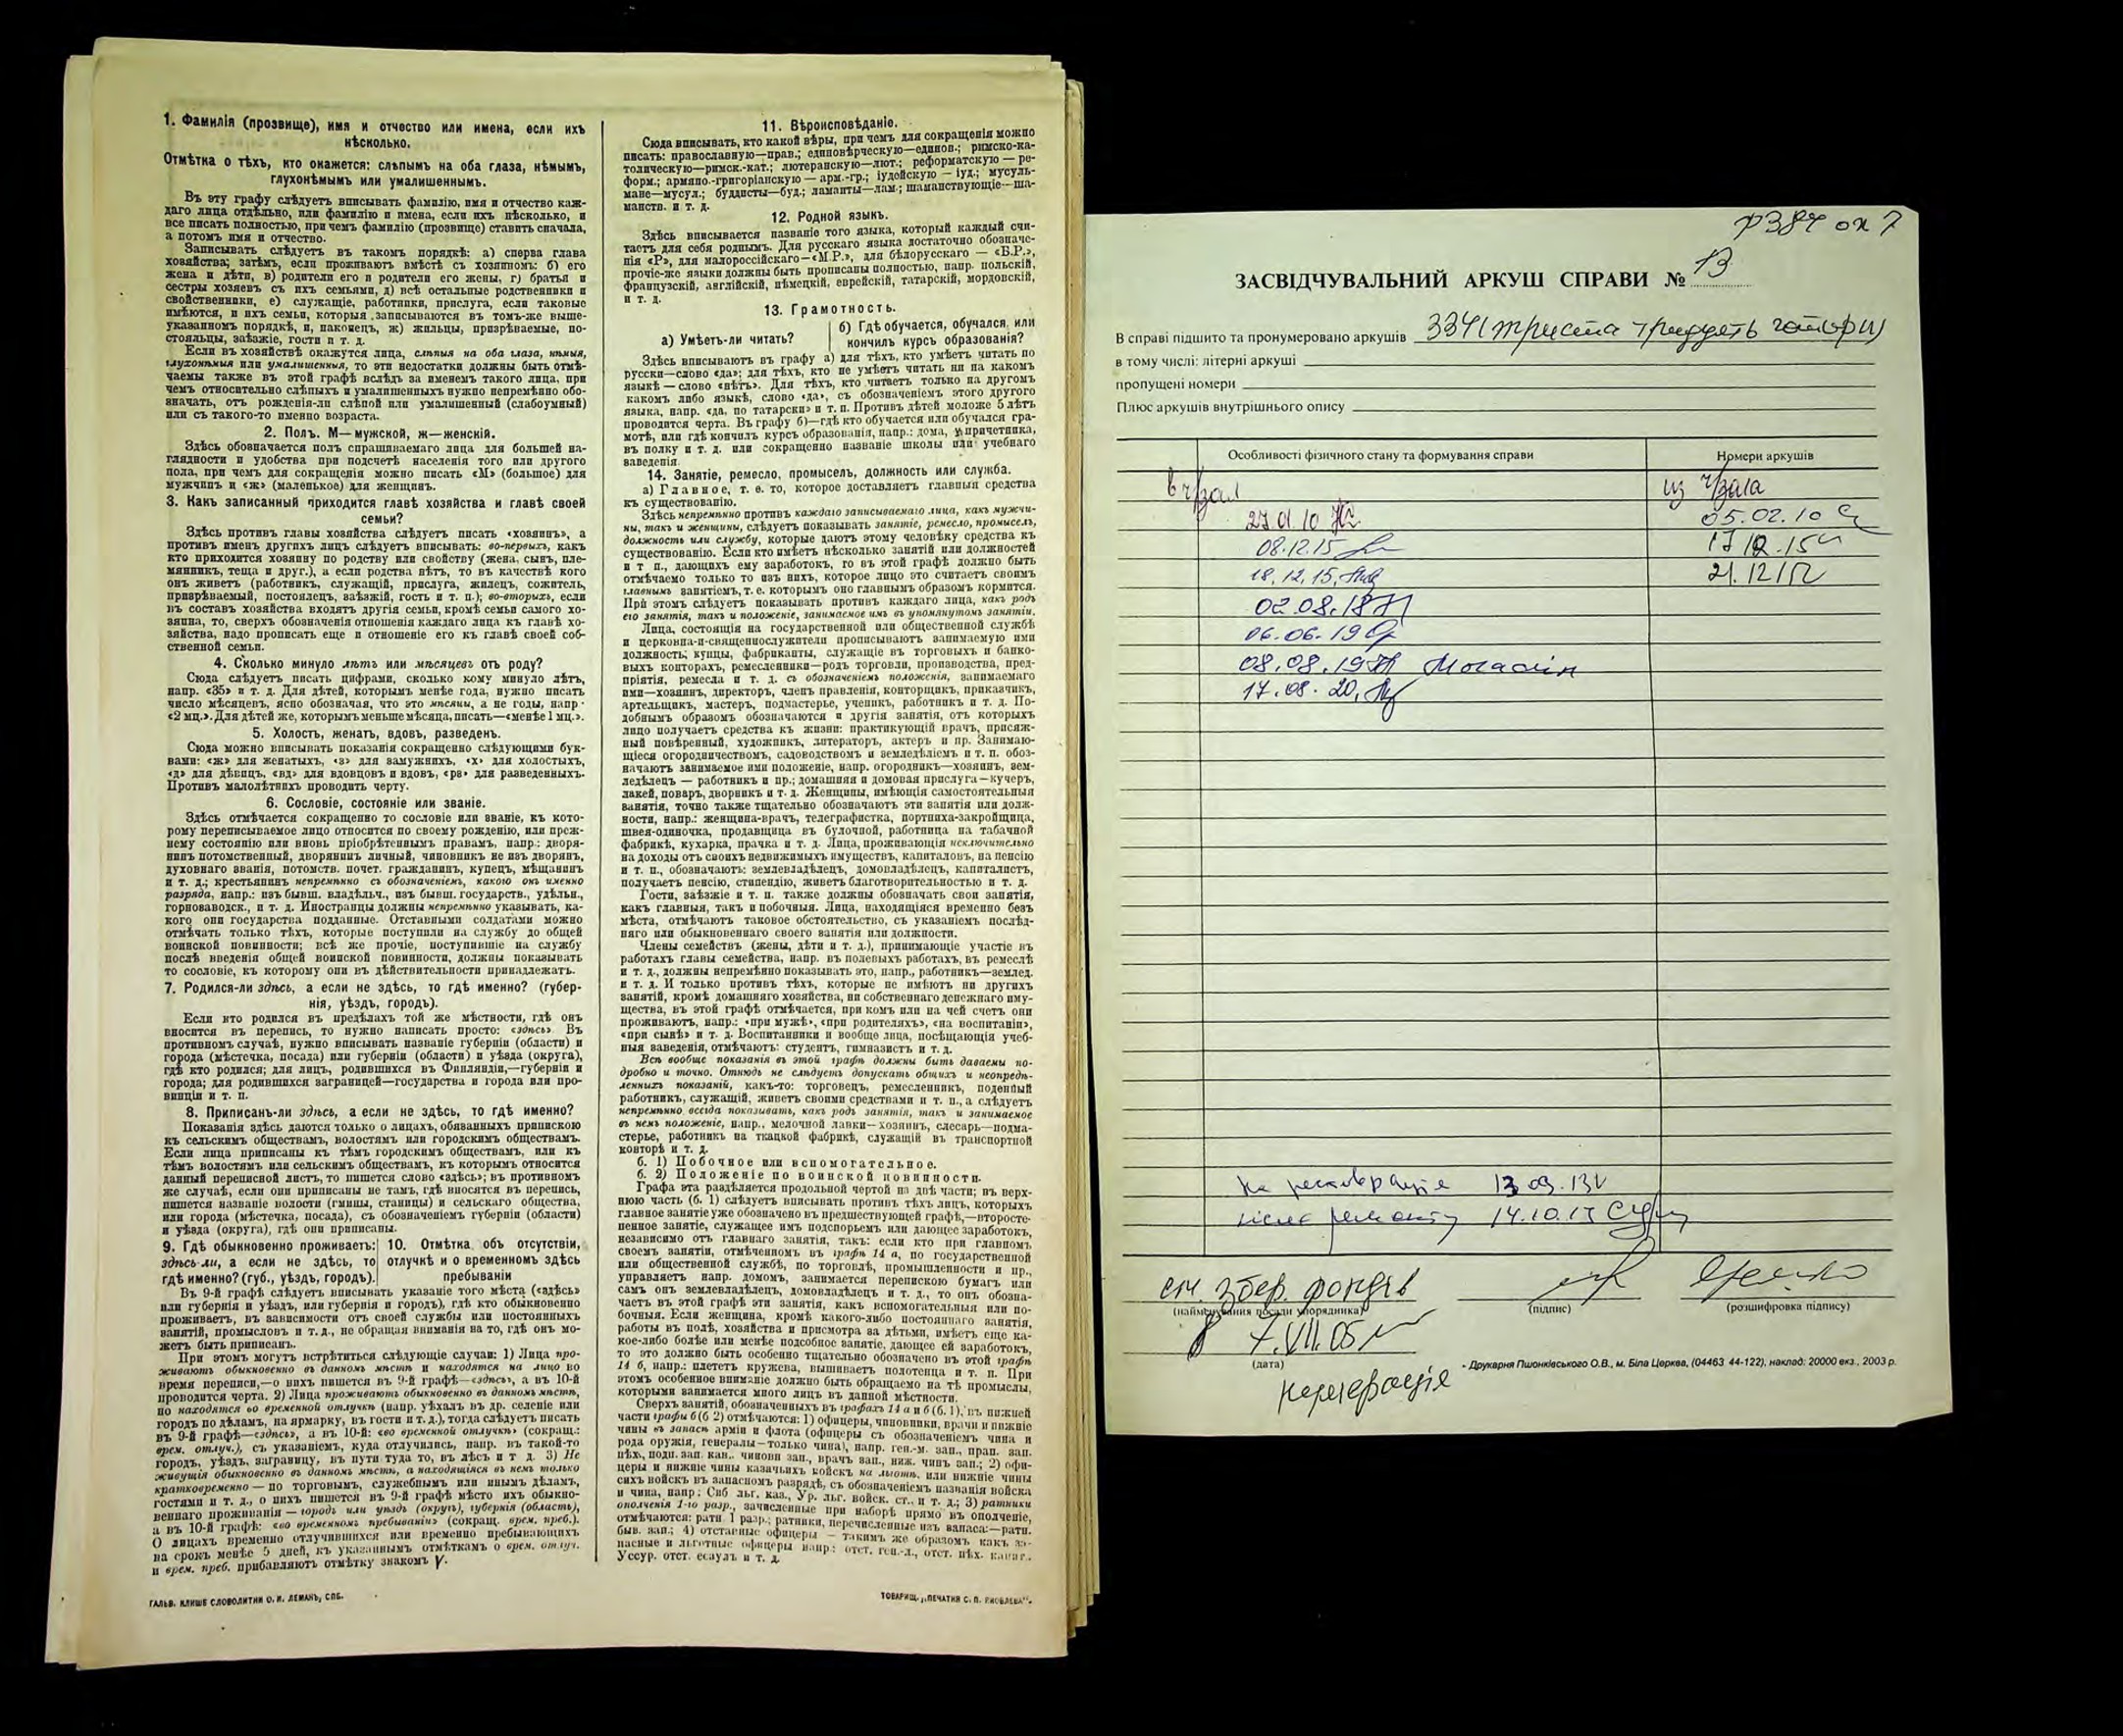 1. Фамилія (прозвище), имя и отчество или имена, если ихъ
нѣсколько.
Отмѣтка о тѣхъ, кто окажется: слѣпымъ на оба глаза, нѣмымъ,
глухонѣмымъ или умалишеннымъ.
Въ эту графу слѣдуетъ вписывать фамилію, имя и отчество каж-
даго лица отдѣльно, или фамилію и имена, если ихъ нѣсколько, и
все писать полностью, при чемъ фамилію (прозвище) ставить сначала,
а потомъ имя и отчество.
Записывать слѣдуетъ въ такомъ порядкѣ: а) сперва глава
хозяйства; затѣмъ, если проживаютъ вмѣстѣ съ хозяиномъ: б) его
жена и дѣти, в) родители его и родители его жены, г) братья и
сестры хозяевъ съ ихъ семьями, д) всѣ остальные родственники и
свойственники, е) служащіе, работники, прислуга, если таковые
имѣются, и ихъ семьи, которыя записываются въ томъ-же выше-
указанномъ порядкѣ, и, наконецъ, ж) жильцы, призрѣваемые, по-
стояльцы, заѣзжіе, гости и т. п.
Если въ хозяйствѣ окажутся лица, слѣпыя на оба глаза, нѣмыя,
глухонѣмыя или умалишенныя, то эти недостатки должны быть отмѣ-
чаемы также въ этой графѣ вслѣдъ за именемъ такого лица, при
чемъ относительно слѣпыхъ и умалишенныхъ нужно непремѣнно обо-
значать, отъ рожденія-ли слѣпой или умалишенный (слабоумный)
или съ такого-то именно возраста.
2. Полъ. М—мужской, ж—женскій.
Здѣсь обозначается полъ спрашиваемаго лица для большей на-
глядности и удобства при подсчетѣ населенія того или другого
пола, при чемъ для сокращенія можно писать «М» (большое) для
мужчинъ и «ж» (маленькое) для женщинъ.
3. Какъ записанный приходится главѣ хозяйства и главѣ своей
семьи?
Здѣсь противъ главы хозяйства слѣдуетъ писать «хозяинъ», а
противъ именъ другихъ лицъ слѣдуетъ вписывать: во-первыхъ, какъ
кто приходится хозяину по родству или свойству (жена, сынъ, пле-
мянникъ, теща и друг.), а если родства нѣтъ, то въ качествѣ кого
онъ живетъ (работникъ, служащій, прислуга, жилецъ, сожитель,
призрѣваемый, постоялецъ, заѣзжій, гость и т. п.); во-вторыхъ, если
въ составъ хозяйства входятъ другія семьи, кромѣ семьи самого хо-
зяина, то, сверхъ обозначенія отношенія каждаго лица къ главѣ хо-
зяйства, надо прописать еще и отношеніе его къ главѣ своей соб-
ственной семьи.
4. Сколько минуло лѣтъ или мѣсяцевъ отъ роду?
Сюда слѣдуетъ писать цифрами, сколько кому минуло лѣтъ,
напр. «35» и т. д. Для дѣтей, которымъ менѣе года, нужно писать
число мѣсяцевъ, ясно обозначая, что это мѣсяцы, а не годы, напр·
«2 мц.». Для дѣтей же, которымъ меньше мѣсяца, писать—«менѣе 1 мц.».
5. Холостъ, женатъ, вдовъ, разведенъ.
Сюда можно вписывать показанія сокращенно слѣдующими бук-
вами: «ж» для женатыхъ, «з» для замужнихъ, «х» для холостыхъ,
«д» для дѣвицъ, «вд» для вдовцовъ и вдовъ, «рв» для разведенныхъ.
Противъ малолѣтнихъ проводить черту.
6. Сословіе, состояніе или званіе.
Здѣсь отмѣчается сокращенно то сословіе или званіе, къ кото-
рому переписываемое лицо относится по своему рожденію, или преж-
нему состоянію или вновь пріобрѣтеннымъ правамъ, напр.: дворя-
нинъ потомственный, дворянинъ личный, чиновникъ не изъ дворянъ,
духовнаго званія, потомств. почет. гражданинъ, купецъ, мѣщанинъ
и т. д.; крестьянинъ непремѣнно съ обозначеніемъ, какого онъ именно
разряда, напр.: изъ бывш. владѣльч., изъ бывш. государств., удѣльн.,
горнозаводск., и т. д. Иностранцы должны непремѣнно указывать, ка-
кого они государства подданные. Отставными солдатами можно
отмѣчать только тѣхъ, которые поступили на службу до общей
воинской повинности; всѣ же прочіе, поступившіе на службу
послѣ введенія общей воинской повинности, должны показывать
то сословіе, къ которому они въ дѣйствительности принадлежатъ.
7. Родился-ли здѣсь, а если не здѣсь, то гдѣ именно? (губер-
нія, уѣздъ, городъ).
Если кто родился въ предѣлахъ той же мѣстности, гдѣ онъ
вносится въ перепись, то нужно написать просто: «здѣсь». Въ
противномъ случаѣ, нужно вписывать названіе губерніи (области) и
города (мѣстечка, посада) или губерніи (области) и уѣзда (округа),
гдѣ кто родился; для лицъ, родившихся въ Финляндіи,—губерніи и
города; для родившихся заграницей—государства и города или про-
винціи и т. п.
8. Приписанъ-ли здѣсь, а если не здѣсь, то гдѣ именно?
Показанія здѣсь даются только о лицахъ, обязанныхъ припискою
къ сельскимъ обществамъ, волостямъ или городскимъ обществамъ.
Если лица приписаны къ тѣмъ городскимъ обществамъ, или къ
тѣмъ волостямъ или сельскимъ обществамъ, къ которымъ относится
данный переписной листъ, то пишется слово «здѣсь»; въ противномъ
же случаѣ, если они приписаны не тамъ, гдѣ вносятся въ перепись,
пишется названіе волости (гмины, станицы) и сельскаго общества,
или города (мѣстечка, посада), съ обозначеніемъ губерніи (области)
и уѣзда (округа), гдѣ они приписаны.
9. Гдѣ обыкновенно проживаетъ:
здѣсь-ли, а если не здѣсь, то
гдѣ именно? (губ., уѣздъ, городъ).
10. Отмѣтка объ отсутствіи,
отлучкѣ и о временномъ здѣсь
пребываніи
Въ 9-й графѣ слѣдуетъ вписывать указаніе того мѣста («здѣсь»
или губернія и уѣздъ, или губернія и городъ), гдѣ кто обыкновенно
проживаетъ, въ зависимости отъ своей службы или постоянныхъ
занятій, промысловъ и т. д., не обращая вниманія на то, гдѣ онъ мо-
жетъ быть приписанъ.
При этомъ могутъ встрѣтиться слѣдующіе случаи: 1) Лица про-
живаютъ обыкновенно въ данномъ мѣстѣ и находятся на лицо во
время переписи,—о нихъ пишется въ 9-й графѣ—«здѣсь», а въ 10-й
проводится черта. 2) Лица проживаютъ обыкновенно въ данномъ мѣстѣ,
но находятся во временной отлучкѣ (напр. уѣхалъ въ др. селеніе или
городъ по дѣламъ, на ярмарку, въ гости и т. д.), тогда слѣдуетъ писать
въ 9-й графѣ—«здѣсь», а въ 10-й: «во временной отлучкѣ» (сокращ.:
врем. отлуч.), съ указаніемъ, куда отлучились, напр. въ такой-то
городъ, уѣздъ, заграницу, въ пути туда то, въ лѣсъ и т д. 3) Не
живущія обыкновенно въ данномъ мѣстѣ, а находящіяся въ немъ только
кратковременно — по торговымъ, служебнымъ или инымъ дѣламъ,
гостями и т. д., о нихъ пишется въ 9-й графѣ мѣсто ихъ обыкно-
веннаго проживанія — городъ или уѣздъ (округъ), губернія (область),
а въ 10-й графѣ: «во временномъ пребываніи» (сокращ. врем. преб.).
О лицахъ временно отлучившихся или временно пребывающихъ
на срокъ менѣе 5 дней, къ указаннымъ отмѣткамъ о врем. отлуч.
и врем. преб. прибавляютъ отмѣтку знакомъ V.
ГАЛЬВ. КЛИШЕ СЛОВОЛИТНИ О. И. ЛЕМАНЪ, СПБ.
11. Вѣроисповѣданіе.
Сюда вписывать, кто какой вѣры, при чемъ для сокращенія можно
писать: православную—прав.; единовѣрческую—единов.; римско-ка-
толическую—римск.-кат.; лютеранскую—лют.; реформатскую — ре-
форм.; армяно-григоріанскую — арм.-гр.; іудейскую — іуд.; мусуль-
мане—мусул.; буддисты—буд.; ламаиты—лам.; шаманствующіе—ша-
манств. и т. д.
12. Родной языкъ.
Здѣсь вписывается названіе того языка, который каждый счи-
таетъ для себя роднымъ. Для русскаго языка достаточно обозначе-
нія «Р», для малороссійскаго—«М.Р.», для бѣлорусскаго — «Б.Р.»,
прочіе-же языки должны быть прописаны полностью, напр. польскій,
французскій, англійскій, нѣмецкій, еврейскій, татарскій, мордовскій,
и т. д.
13. Грамотность.
а) Умѣетъ-ли читать?
б) Гдѣ обучается, обучался или
кончилъ курсъ образованія?
Здѣсь вписываютъ въ графу а) для тѣхъ, кто умѣетъ читать по
русски—слово «да»; для тѣхъ, кто не умѣетъ читать ни на какомъ
языкѣ — слово «нѣтъ». Для тѣхъ, кто читаетъ только на другомъ
какомъ либо языкѣ, слово «да», съ обозначеніемъ этого другого
языка, напр. «да, по татарски» и т. п. Противъ дѣтей моложе 5 лѣтъ
проводится черта. Въ графу б)—гдѣ кто обучается или обучался гра-
мотѣ, или гдѣ кончилъ курсъ образованія, напр.: дома, у причетника,
въ полку и т. д. или сокращенно названіе школы или учебнаго
заведенія.
14. Занятіе, ремесло, промыселъ, должность или служба.
а) Главное, т. е. то, которое доставляетъ главныя средства
къ существованію.
Здѣсь непремѣнно противъ каждаго записываемаго лица, какъ мужчи-
ны, такъ и женщины, слѣдуетъ показывать занятіе, ремесло, промыселъ,
должность или службу, которые даютъ этому человѣку средства къ
существованію. Если кто имѣетъ нѣсколько занятій или должностей
и т п., дающихъ ему заработокъ, то въ этой графѣ должно быть
отмѣчаемо только то изъ нихъ, которое лицо это считаетъ своимъ
главнымъ занятіемъ, т. е. которымъ оно главнымъ образомъ кормится.
При этомъ слѣдуетъ показывать противъ каждаго лица, какъ родъ
его занятія, такъ и положеніе, занимаемое имъ въ упомянутомъ занятіи.
Лица, состоящія на государственной или общественной службѣ
и церковно-и-священнослужители прописываютъ занимаемую ими
должность; купцы, фабриканты, служащіе въ торговыхъ и банко-
выхъ конторахъ, ремесленники—родъ торговли, производства, пред-
пріятія, ремесла и т. д. съ обозначеніемъ положенія, занимаемаго
ими—хозяинъ, директоръ, членъ правленія, конторщикъ, приказчикъ,
артельщикъ, мастеръ, подмастерье, ученикъ, работникъ и т. д. По-
добнымъ образомъ обозначаются и другія занятія, отъ которыхъ
лицо получаетъ средства къ жизни: практикующій врачъ, присяж-
ный повѣренный, художникъ, литераторъ, актеръ и пр. Занимаю-
щіеся огородничествомъ, садоводствомъ и земледѣліемъ и т. п. обоз-
начаютъ занимаемое ими положеніе, напр. огородникъ—хозяинъ, зем-
ледѣлецъ — работникъ и пр.; домашняя и домовая прислуга—кучеръ,
лакей, поваръ, дворникъ и т. д. Женщины, имѣющія самостоятельныя
занятія, точно также тщательно обозначаютъ эти занятія или долж-
ности, напр.: женщина-врачъ, телеграфистка, портниха-закройщица,
швея-одиночка, продавщица въ булочной, работница на табачной
фабрикѣ, кухарка, прачка и т. д. Лица, проживающія исключительно
на доходы отъ своихъ недвижимыхъ имуществъ, капиталовъ, на пенсію
и т. п., обозначаютъ: землевладѣлецъ, домовладѣлецъ, капиталистъ,
получаетъ пенсію, стипендію, живетъ благотворительностью и т. д.
Гости, заѣзжіе и т. п. также должны обозначать свои занятія,
какъ главныя, такъ и побочныя. Лица, находящіяся временно безъ
мѣста, отмѣчаютъ таковое обстоятельство, съ указаніемъ послѣд-
няго или обыкновеннаго своего занятія или должности.
Члены семействъ (жены, дѣти и т. д.), принимающіе участіе въ
работахъ главы семейства, напр. въ полевыхъ работахъ, въ ремеслѣ
и т. д., должны непремѣнно показывать это, напр., работникъ—землед.
и т. д. И только противъ тѣхъ, которые не имѣютъ ни другихъ
занятій, кромѣ домашняго хозяйства, ни собственнаго денежнаго иму-
щества, въ этой графѣ отмѣчается, при комъ или на чей счетъ они
проживаютъ, напр.: «при мужѣ», «при родителяхъ», «на воспитаніи»,
«при сынѣ» и т. д. Воспитанники и вообще лица, посѣщающія учеб-
ныя заведенія, отмѣчаютъ: студентъ, гимназистъ и т. д.
Всѣ вообще показанія въ этой графѣ должны быть даваемы по-
дробно и точно. Отнюдь не слѣдуетъ допускать общихъ и неопредѣ-
ленныхъ показаній, какъ-то: торговецъ, ремесленникъ, поденный
работникъ, служащій, живетъ своими средствами и т. п., а слѣдуетъ
непремѣнно всегда показывать, какъ родъ занятія, такъ и занимаемое
въ немъ положеніе, напр., мелочной лавки—хозяинъ, слесарь—подма-
стерье, работникъ на ткацкой фабрикѣ, служащій въ транспортной
конторѣ и т. д.
б. 1) Побочное или вспомогательное.
б. 2) Положеніе по воинской повинности.
Графа эта раздѣляется продольной чертой на двѣ части; въ верх-
нюю часть (б. 1) слѣдуетъ вписывать противъ тѣхъ лицъ, которыхъ
главное занятіе уже обозначено въ предшествующей графѣ,—второсте-
пенное занятіе, служащее имъ подспорьемъ или дающее заработокъ,
независимо отъ главнаго занятія, такъ: если кто при главномъ
своемъ занятіи, отмѣченномъ въ графѣ 14 а, по государственной
или общественной службѣ, по торговлѣ, промышленности и пр.,
управляетъ напр. домомъ, занимается перепискою бумагъ или
самъ онъ землевладѣлецъ, домовладѣлецъ и т. д., то онъ обозна-
чаетъ въ этой графѣ эти занятія, какъ вспомогательныя или по-
бочныя. Если женщина, кромѣ какого-либо постояннаго занятія,
работы въ полѣ, хозяйства и присмотра за дѣтьми, имѣетъ еще ка-
кое-либо болѣе или менѣе подсобное занятіе, дающее ей заработокъ,
то это должно быть особенно тщательно обозначено въ этой графѣ
14 б, напр.: плететъ кружева, вышиваетъ полотенца и т. п. При
этомъ особенное вниманіе должно быть обращаемо на тѣ промыслы,
которыми занимается много лицъ въ данной мѣстности.
Сверхъ занятій, обозначенныхъ въ графахъ 14 а и б (б. 1), въ нижней
части графы б (б 2) отмѣчаются: 1) офицеры, чиновники, врачи и нижніе
чины въ запасѣ арміи и флота (офицеры съ обозначеніемъ чина и
рода оружія, генералы—только чина), напр. ген.-м. зап., прап. зап.
пѣх., подп. зап. кав., чиновн зап., врачъ зап., ниж. чинъ зап.; 2) офи-
церы и нижніе чины казачьихъ войскъ на льготѣ, или нижніе чины
сихъ войскъ въ запасномъ разрядѣ, съ обозначеніемъ названія войска
и чина, напр: Сиб льг. каз., Ур. льг. войск. ст., и т. д.; 3) ратники
ополченія 1-го разр., зачисленные при наборѣ прямо въ ополченіе,
отмѣчаются: ратн. 1 разр.; ратники, перечисленные изъ запаса:—ратн.
быв. зап.; 4) отставные офицеры — такимъ же образомъ какъ за-
пасные и льготные офицеры напр: отст. ген.-л., отст. пѣх. капит.,
Уссур. отст. есаулъ и т. д.
ТОВАРИЩ. „ПЕЧАТНЯ С. П. ЯКОВЛЕВА".
ф384 оп 7
ЗАСВІДЧУВАЛЬНИЙ АРКУШ СПРАВИ № 13
В справі підшито та пронумеровано аркушів 334 (триста тридцять чотири)
в тому числі: літерні аркуші
пропущені номери
Плюс аркушів внутрішнього опису
Особливості фізичного стану та формування справи
Номери аркушів
в ч/зал
из ч/зала
27.01.10
05.02.10
08.12.15
17.12.15
18.12.15
21.12.15
02.08.18
06.06.19
08.08.19
17.08.20
На реставрацію 13.09.13
після ремонту 14.10.13
ст. збер. фондів
(найменування посади упорядника)
(підпис)
(розшифровка підпису)
7.VII.05
(дата)
Друкарня Пшонківського О.В., м. Біла Церква, (04463 44-122), наклад: 20000 екз., 2003 р.
нумерація